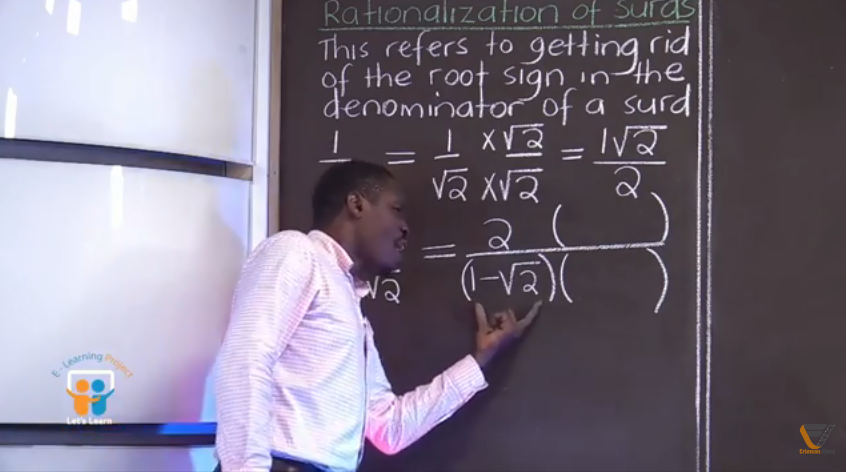 Rationalization of Surds
This refers to getting rid
of the root sign in the
denominator of a surd
1 = 1 ×√2 = 1√2
√2 ×√2 2
= 2 ( )
√2 (1-√2)( )
E - Learning Project
Let's Learn